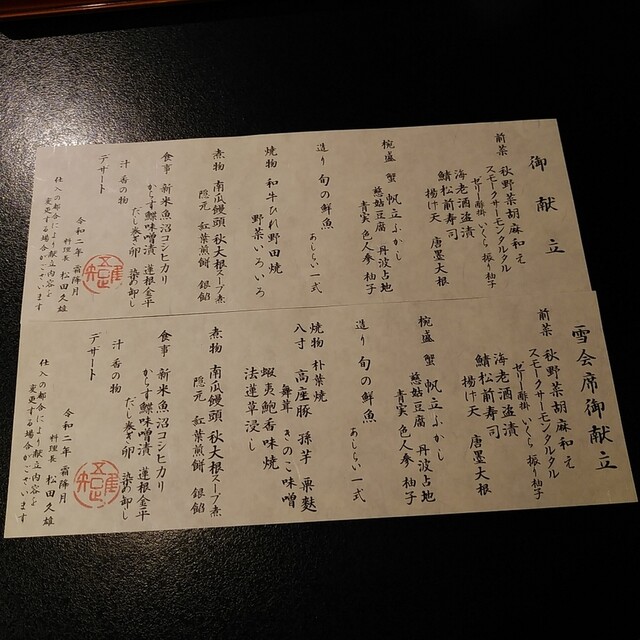 御献立
前菜 秋野菜胡麻和え
スモークサーモンタルタル
ゼリー酢掛 いくら 振り柚子
海老酒盗漬
鯖松前寿司
揚げ天 唐墨大根
椀盛 蟹 帆立ふかし
慈姑豆腐 丹波占地
青実 色人参 柚子
造り 旬の鮮魚
あしらい一式
焼物 和牛ひれ野田焼
野菜いろいろ
煮物 南瓜饅頭 秋大根スープ煮
隠元 紅葉煎餅 銀餡
食事 新米魚沼コシヒカリ
からす鰈味噌漬 蓮根金平
だし巻き卵 染め卸し
汁 香の物
デザート
令和二年 霜降月
料理長 松田久雄
仕入の都合により献立内容を
変更する場合がございます
雪会席御献立
前菜 秋野菜胡麻和え
スモークサーモンタルタル
ゼリー酢掛 いくら 振り柚子
海老酒盗漬
鯖松前寿司
揚げ天 唐墨大根
椀盛 蟹 帆立ふかし
慈姑豆腐 丹波占地
青実 色人参 柚子
造り 旬の鮮魚
あしらい一式
焼物 朴葉焼
八寸 高座豚 孫芋 粟麩
舞茸 きのこ味噌
蝦夷鮑香味焼
法蓮草浸し
煮物 南瓜饅頭 秋大根スープ煮
隠元 紅葉煎餅 銀餡
食事 新米魚沼コシヒカリ
からす鰈味噌漬 蓮根金平
だし巻き卵 染め卸し
汁 香の物
デザート
令和二年 霜降月
料理長 松田久雄
仕入の都合により献立内容を
変更する場合がございます